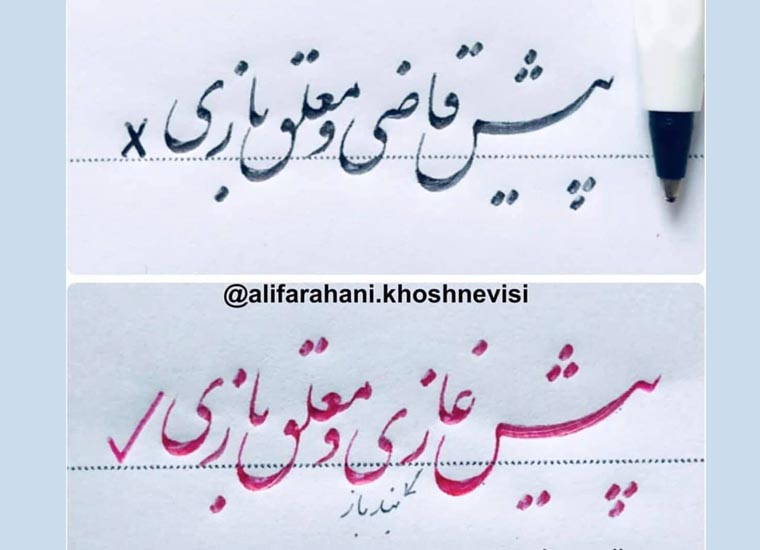 پیش قاضی و معلق بازی x
@alifarahani.khoshnevisi
پیش غازی و معلق بازی ✓
بندباز